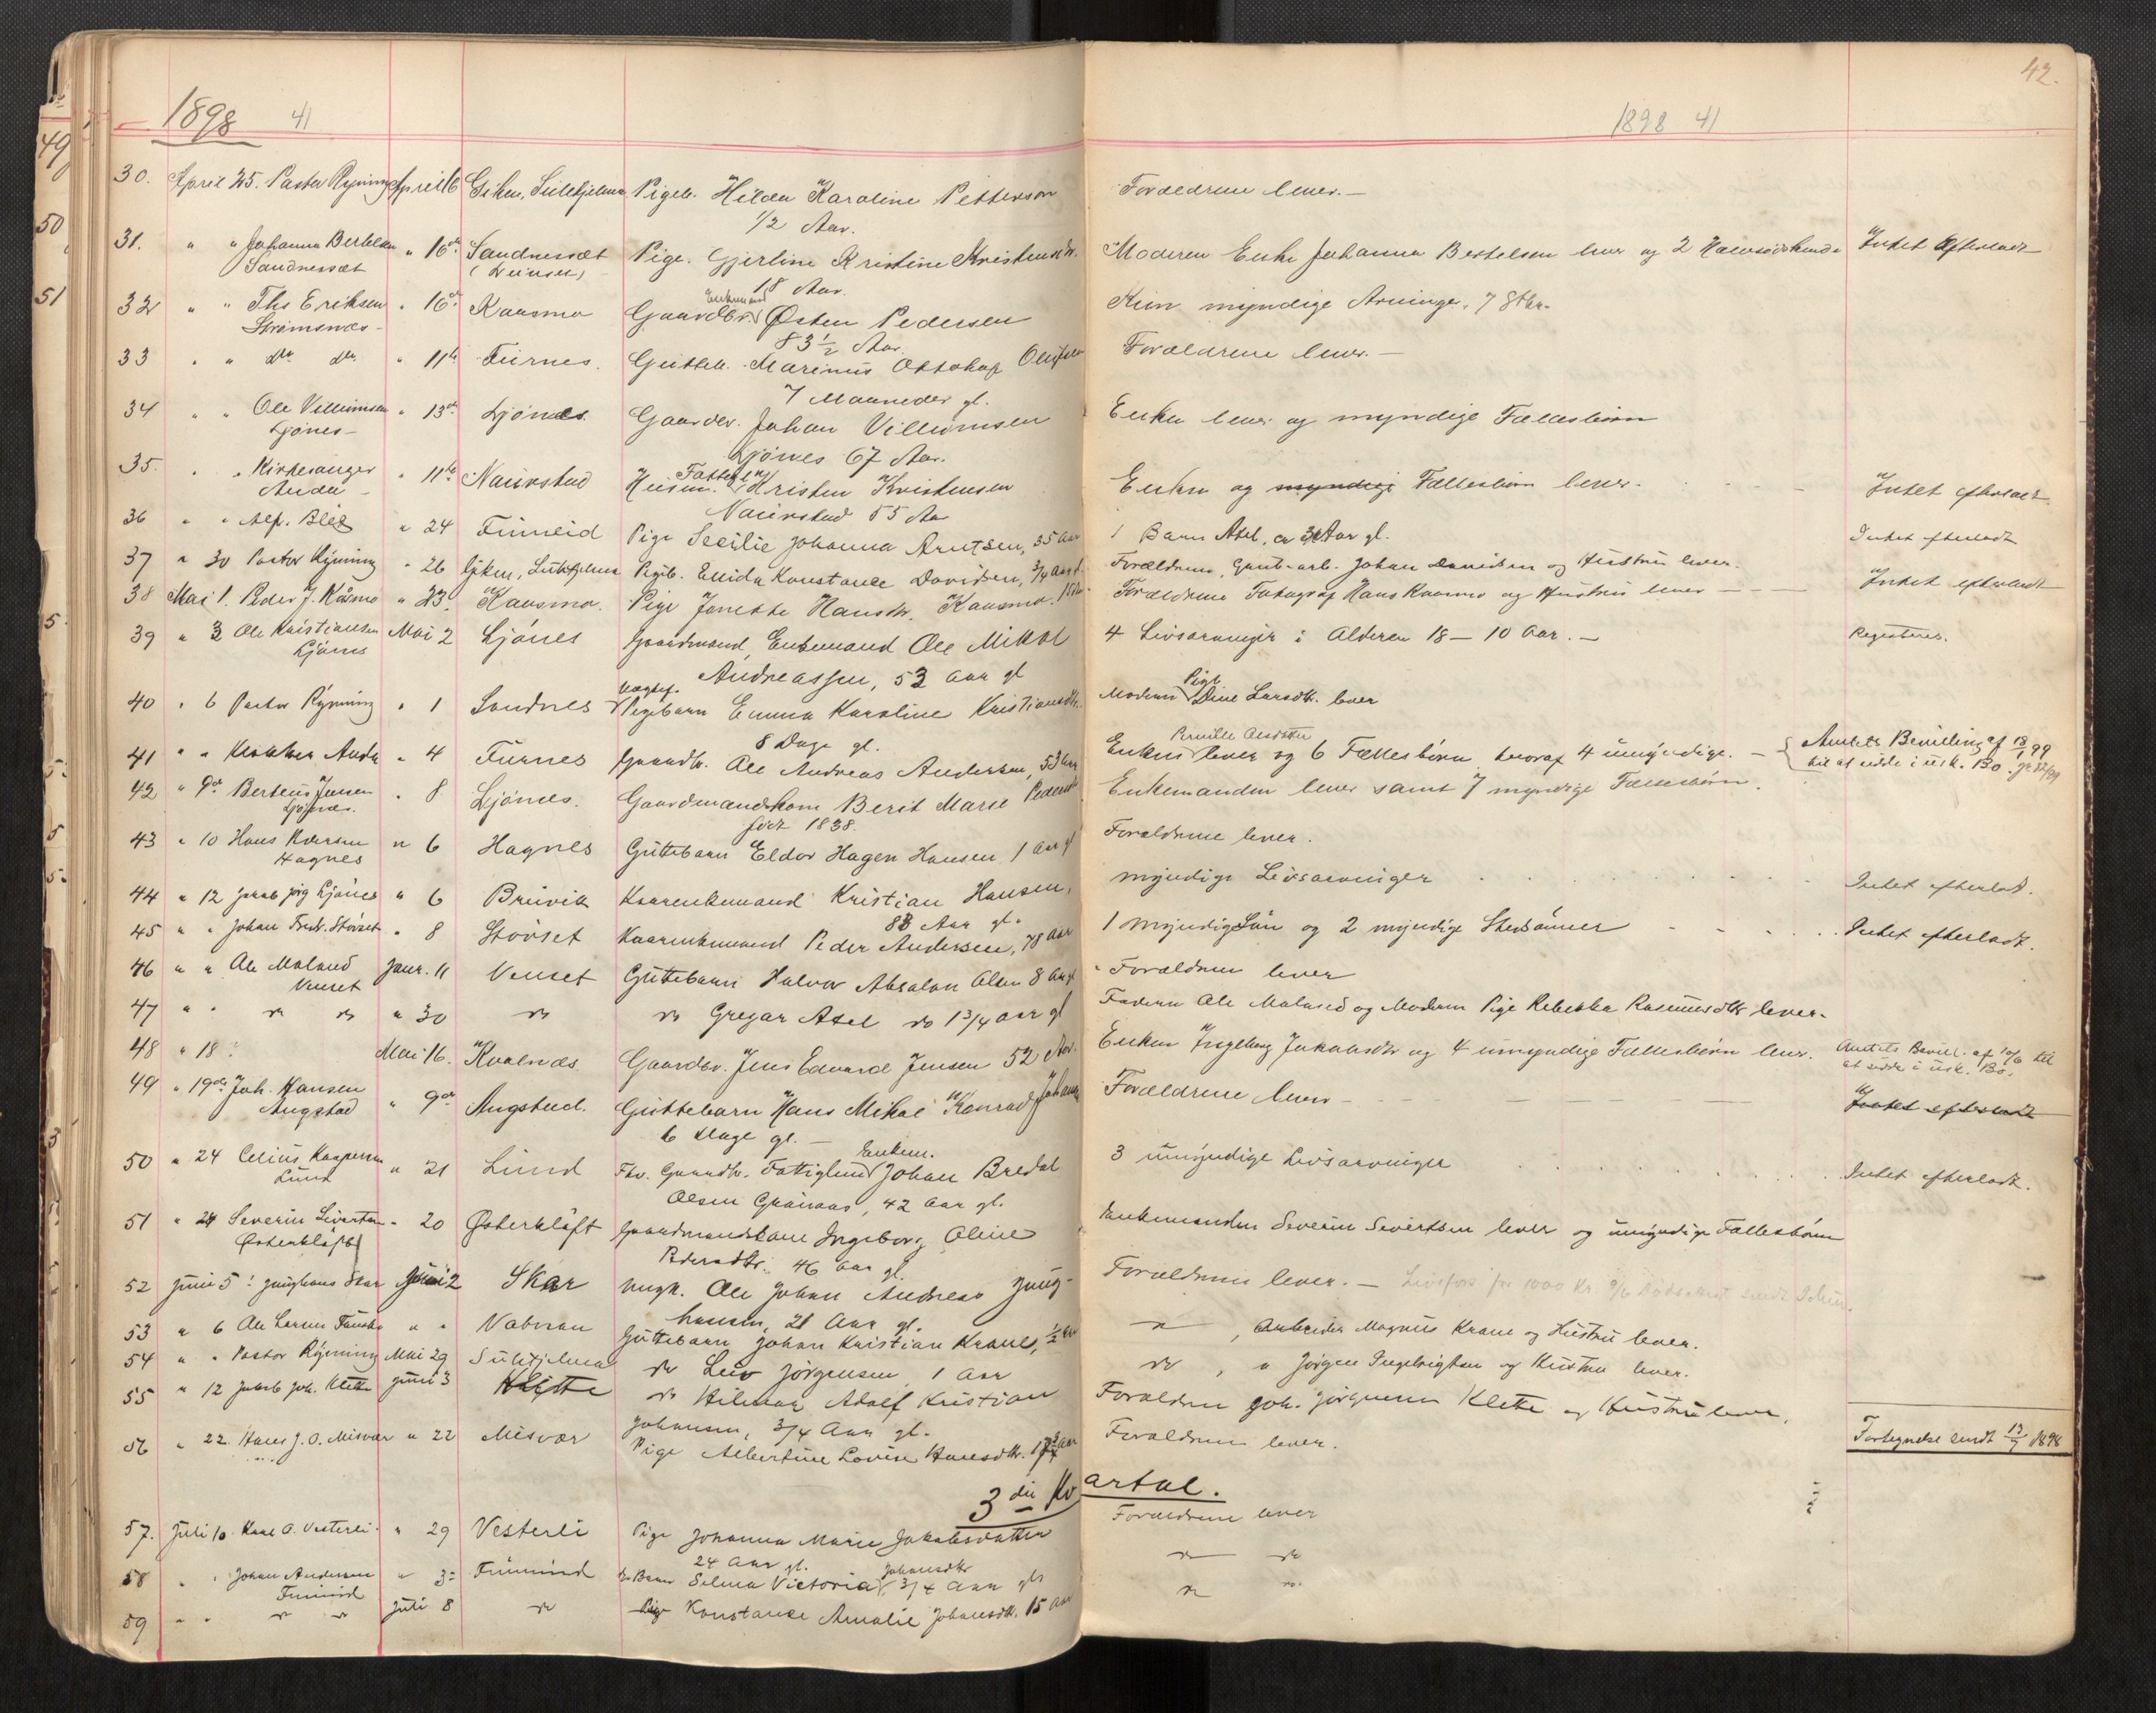 42.
1898 41
1898 41
30. April 25. Pastor Rynning April 16 Giken, Sulitjelma Pigeb. Hilda Karoline Petterson Forældrene lever. —
1/2 Aar.
31. " " Johanna Bertelsen " 16de Sandnessæt Pige. Gjerline Kristine Kristensdtr. Moderen Enke Johanna Bertelsen lever og 2 Halvsødskende Intet efterladt
Sandnessæt 18 Aar.
32 " " Ths Eriksen " 16de Kaasmo Gaardbr. Enkemand Østen Pedersen Kun myndige Arvinger, 7 Stkr.
Strømsnæs — 83 1/2 Aar.
33 " " do. do. " 11te Furnes. Gutteb. Marinus Ottokap Forældrene lever. —
7 Maaneder gl.
34 " " Ole Villumsen " 13de Ljønes. Gaardbr. Johan Villumsen Enken lever og myndige Fællesbørn
Ljønes — Ljønes 67 Aar.
35. " " Kirkesanger " 11te Naurstad Husm. Fattigl. Kristen Kristensen Enken og myndige Fællesbørn lever. Intet efterladt
Naurstad 55 Aar
36 " " Alf. " 24 Fuineid Pige Secilie Johanna Arntsen, 35 Aar 1 Barn Axel, ca 3 Aar gl. Intet efterladt
37 " 30 Pastor Rynning " 26 Giken, Sulitjelma Pigeb. Ellida Konstance Davidsen, 3/4 Aar Forældrene, Grub.-arb. Johan Davidsen og Hustru lever.
38 Mai 1. Peder J. Kåsmo " 23. Kaasmo. Pige Janette Hansdtr. Kaasmo. Forældrene Fotograf Hans Kaasmo og Hustru lever — Intet efterladt
39 " 3 Ole Kristiansen Mai 2 Ljønes Gaardmand, Enkemand Ole Mikal 4 Livsarvinger i Alderen 18 — 10 Aar. — Registreres.
Ljønes Andreassen, 53 Aar gl
40 " 6 Pastor Rynning " 1 Sandnes Uægtef. Pigebarn Emma Karoline Kristiansdtr. Moderen Pige Dine Larsdtr. lever
8 Dage gl.
41 " " " 4 Furnes Gaardbr. Ole Andreas Andersen, 53 Aar Enken Pernille Olsdatter lever og 6 Fællesbørn hvoraf 4 umyndige. — Amtets Bevilling af 13/1 99
til at sidde i usk. Bo.
42 " 9de Berteus Jensen " 8 Ljønes. Gaardmandskone Berit Marie Enkemanden lever samt 7 myndige Fællesbørn.
Ljønes. født 1838.
43 " 10 Hans " 6 Hagnes Guttebarn Eldor Hagen Hansen, 1 Aar gl Forældrene lever.
Hagnes
44 " 12 Ljønes " 6 Bruvik Kaarenkemand Kristian Hansen, myndige Livsarvinger Intet efterladt.
83 Aar gl.
45 " " Johan Fredr. Støvset " 8 Støvset Kaarenkemand Peder Andersen, 78 Aar 1 myndig Søn og 2 myndige Stedsønner Intet efterladt.
46 " " Ole Moland Janr. 11 Venset Guttebarn Halvor Absalon Olsen 8 Aar gl Forældrene lever
Venset
47 " " do do " 30 do do Gregar Axel do 1 3/4 Aar gl Faderen Ole Moland og Moderen Pige Rebekka Rasmusdtr lever.
48 " 18 : Mai 16. Kvalnæs Gaardbr. Jens Edvard Jensen 52 Aar. Enken Ingeborg Jakobsdtr og 4 umyndige Fællesbørn lever. Amtets Bevill. af 10/6 til
at sidde i usk. Bo.
49 " 19de Joh. Hansen " 9de Angstad. Guttebarn Hans Mikal Konrad Forældrene lever Intet efterladt
Angstad 6 Dage gl. —
50 " 24 Celius Kaspersen " 21 Lund Fhv. Gaardbr. Fattiglem Enkem. Johan Bredal 3 umyndige Livsarvinger Intet efterladt.
Lund Olsen Grønaas, 42 Aar gl.
51 " 24 Severin Sivertsen " 20 Østerkløft Gaardmandskone Ingeborg Oline Enkemanden Severin Sivertsen lever og umyndige Fællesbørn
Østerkløft Pedersdtr. 46 Aar gl.
52 Juni 5 : Junghans Skar Juni 2 Skar ungk. Ole Johan Andreas Jung- Forældrene lever. —
hansen, 21 Aar gl.
53 " 6 Ole Larsen " " Vatnan Guttebarn Johan Kristian Krane, 1/2 Aar " , Arbeider Magnus Krane og Hustru lever.
54 " " Pastor Rynning Mai 29 Sulitjelma do Leiv Jørgensen 1 Aar do , " Jørgen Ingebrigtsen og Hustru lever.
55 " 12 Jakob Joh. Klette Juni 3 Klette do Hilmar Adolf Kristian Forældrene Joh. Jørgensen Klette og Hustru lever.
Johansen, 3/4 Aar gl.
56 " 22. Hans J. O. Misvær " 22 Misvær Pige Albertine Lovise Hansdtr. Forældrene lever. Fortegnelse sendt 12/7 1898
3die Kvartal.
57. Juli 10. Karl A. Vesterli. " 29 Vesterli Pige Johanna Marie Jakobsdatter Forældrene lever
24 Aar gl.
58 " " Johan Andersen " 3 Fuineid Barn Selma Victoria Johansdtr 3/4 Aar gl do do
Fuineid
59 " " do do Juli 8 do Pige Konstance Amalie Johansdtr. 15 Aar do do